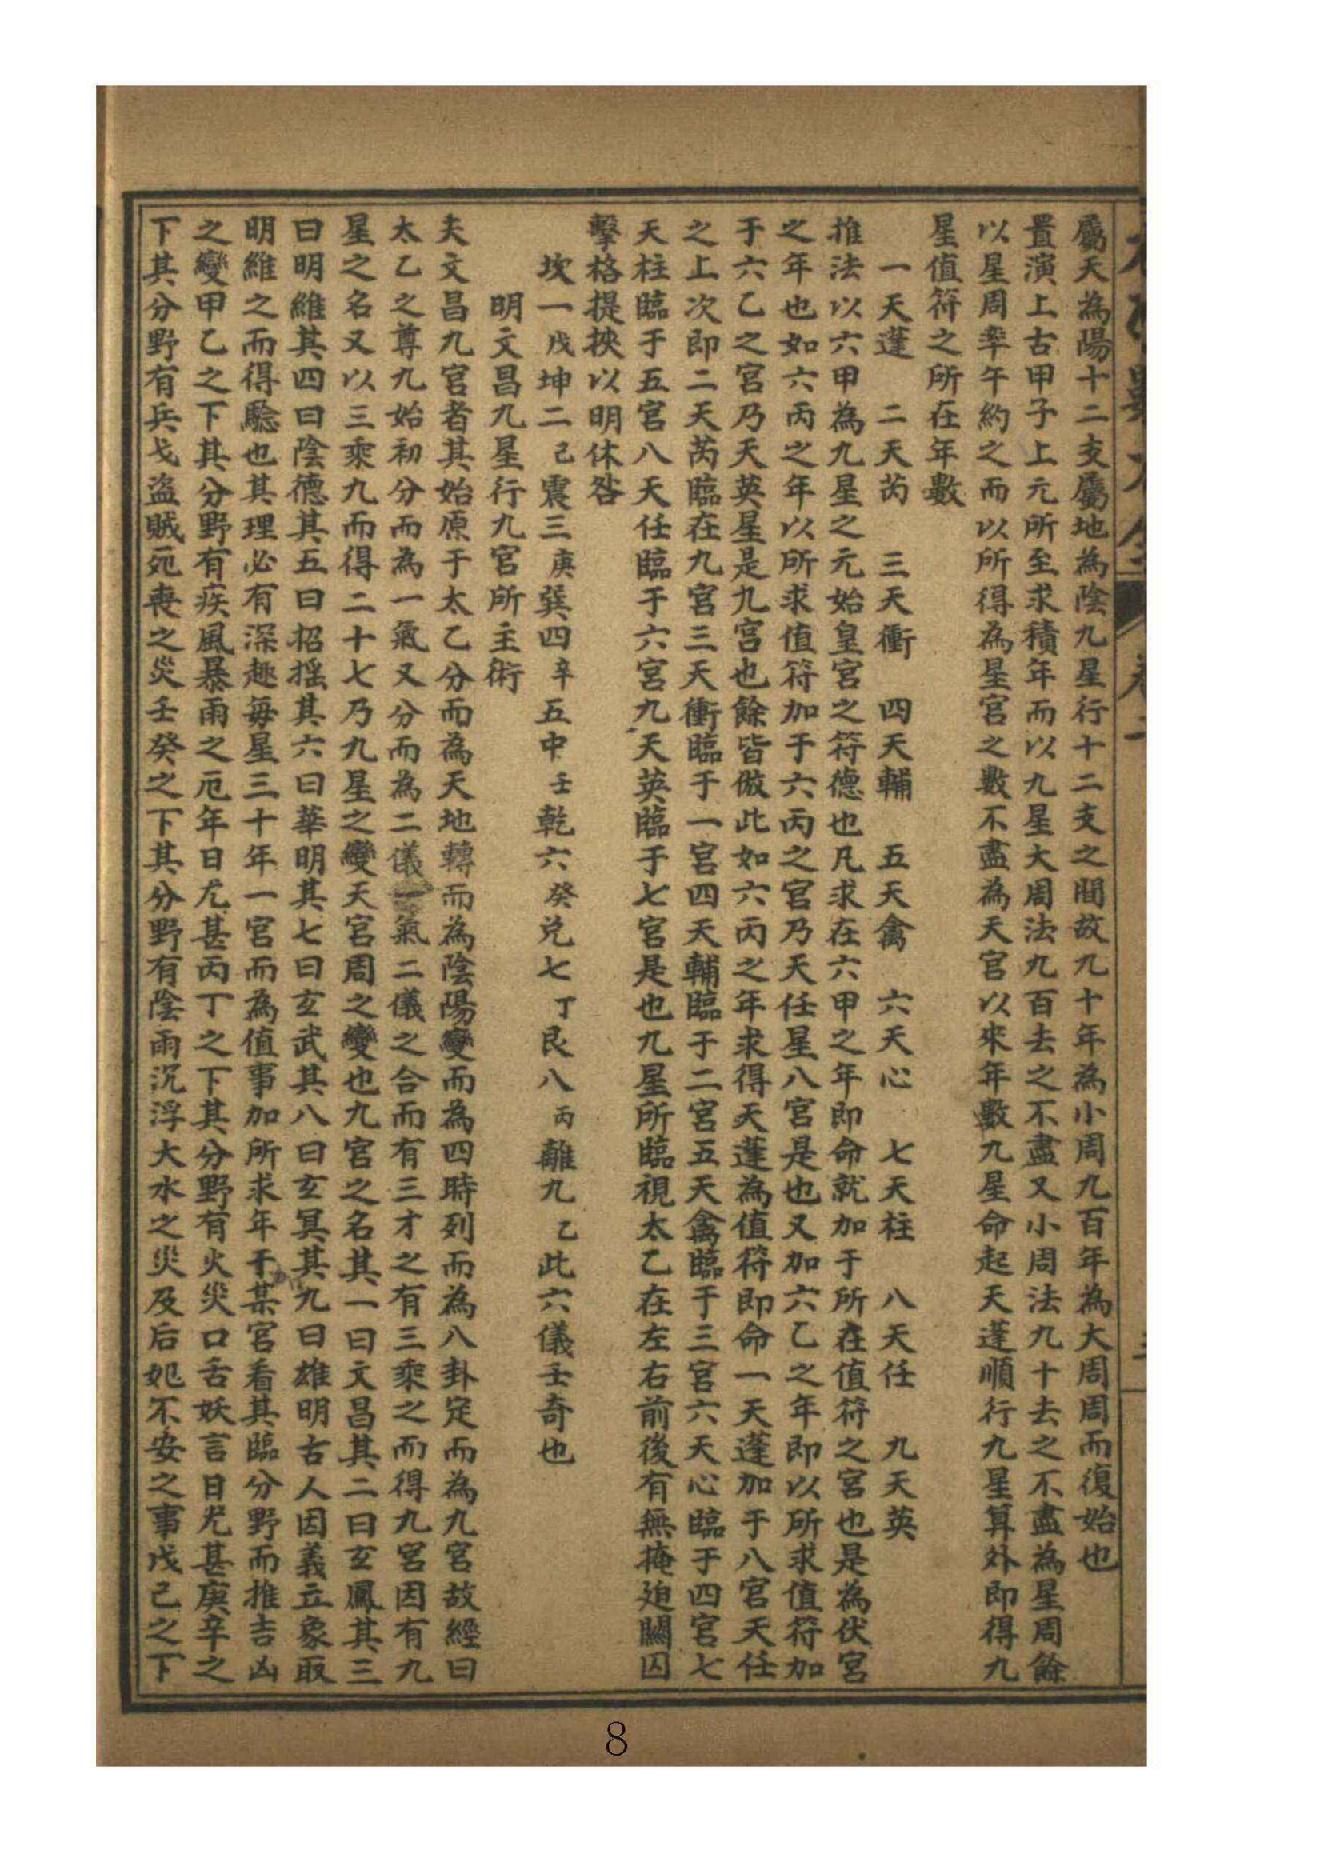 屬天為陽十二支屬地為陰九星行十二支之間故九十年為小周九百年為大周周而復始也
置演上古甲子上元所至求積年而以九星大周法九百去之不盡又小周法九十去之不盡為星周餘
以星周率午約之而以所得為星宮之數不盡為天官以來年數九星命起天蓬順行九星算外即得九
星值符之所在年數
一天蓬 二天芮 三天衝 四天輔 五天禽 六天心 七天柱 八天任 九天英
推法以六甲為九星之元始皇宮之符德也凡求在六甲之年即命就加于所在值符之宮也是為伏宮
之年也如六丙之年以所求值符加于六丙之宮乃天任星八宮是也又加六乙之年即以所求值符加
于六乙之宮乃天英星是九宮也餘皆倣此如六丙之年求得天蓬為值符即命一天蓬加于八宮天任
之上次即二天芮臨在九宮三天衝臨于一宮四天輔臨于二宮五天禽臨于三宮六天心臨于四宮七
天柱臨于五宮八天任臨于六宮九天英臨于七宮是也九星所臨視太乙在左右前後有無掩廹關囚
擊格提挾以明休咎
坎一戊坤二己震三庚巽四辛五中壬乾六癸兌七丁艮八丙離九乙此六儀壬奇也
明文昌九星行九宮所主術
夫文昌九宮者其始原于太乙分而為天地轉而為陰陽變而為四時列而為八卦定而為九宮故經曰
太乙之尊九始初分而為一氣又分而為二儀一氣二儀之合而有三才之有三乘之而得九宮因有九
星之名又以三乘九而得二十七乃九星之變天宮周之變也九宮之名其一曰文昌其二曰玄鳳其三
曰明維其四曰陰德其五曰招搖其六曰華明其七曰玄武其八曰玄冥其九曰雄明古人因義立象取
明維之而得驗也其理必有深趣每星三十年一宮而為值事加所求年干某宮看其臨分野而推吉凶
之變甲乙之下其分野有疾風暴雨之厄年日尤甚丙丁之下其分野有火災口舌妖言日尤甚庚辛之
下其分野有兵戈盜賊死喪之災壬癸之下其分野有陰雨沉浮大水之災及后妃不安之事戊己之下
8